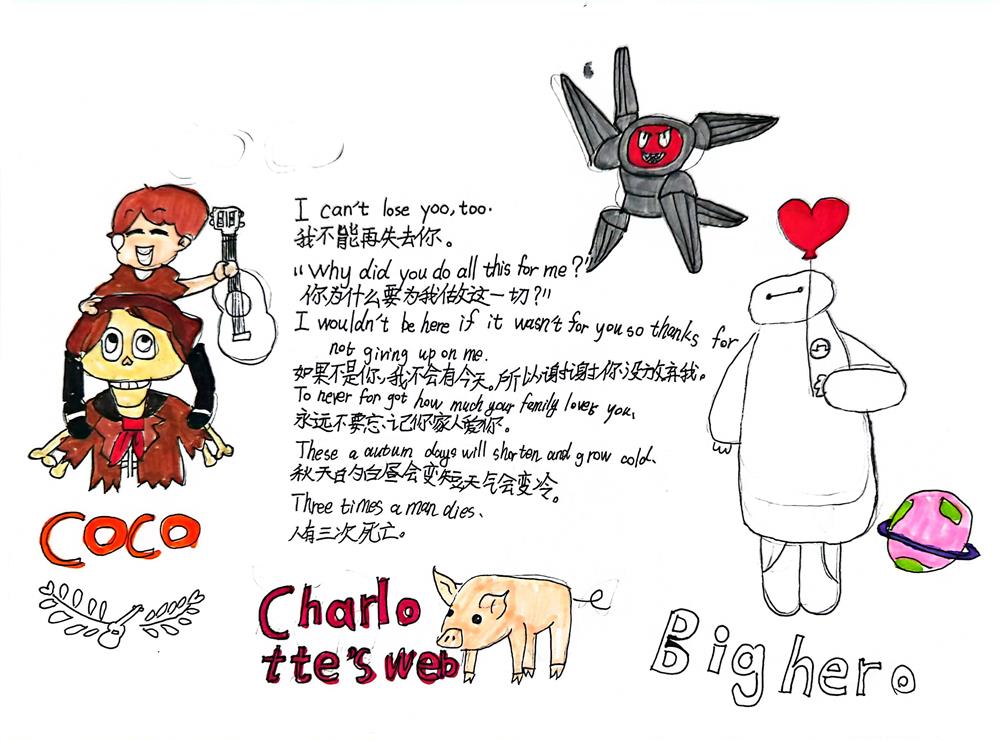 I can't lose yoo, too.
我不能再失去你。
"Why did you do all this for me?"
你为什么要为我做这一切?"
I wouldn't be here if it wasn't for you so thanks for
not giving up on me.
如果不是你,我不会有今天。所以谢谢你没放弃我。
To never for got how much your family loves you,
永远不要忘记你家人爱你。
These a autum days will shorten and grow cold.
秋天的白昼会变短天气会变冷。
Three times a man dies、
人有三次死亡。
COCO
Charlo
tte's web
Big hero